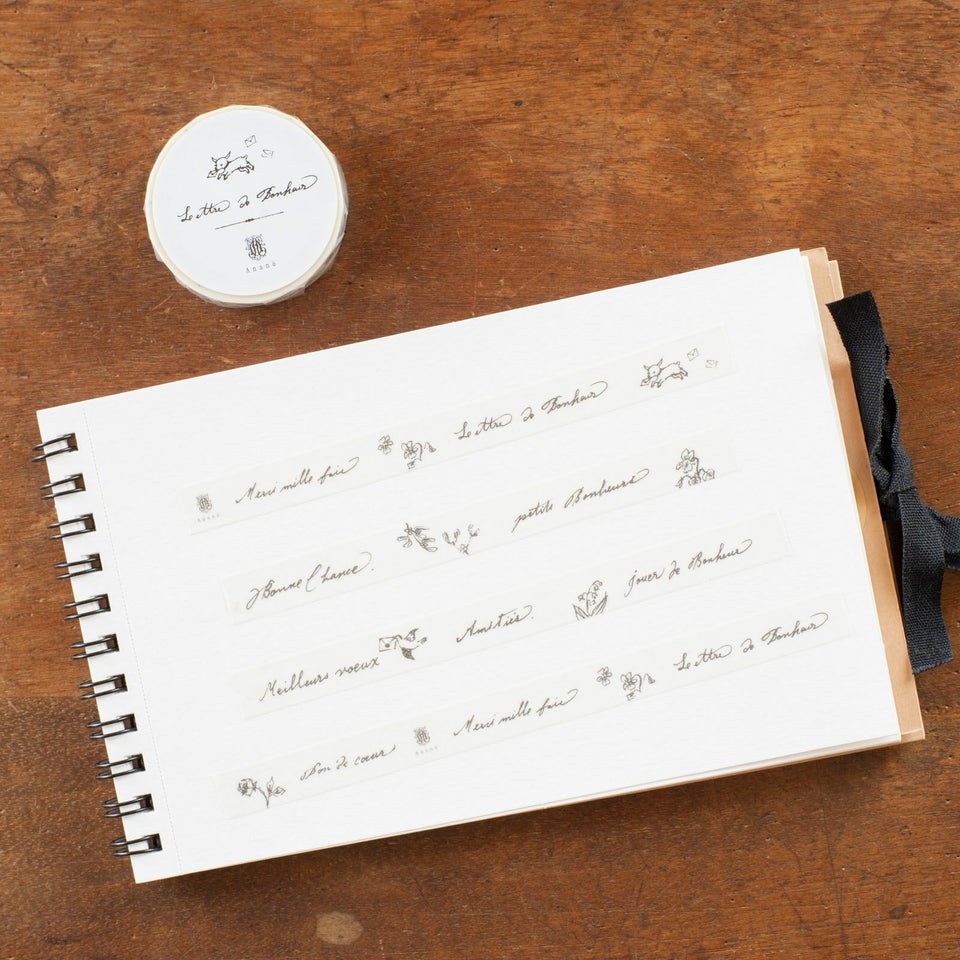 Lettre de Bonhair
Ananè
Merci mille fois Lettre de Bonhair
Ananè
Bonne Chance. petits Bonheurs
Meilleurs voeux Amitiés. jouer de Bonheur
Don de cœur Merci mille fois Lettre de Bonhair
Ananè